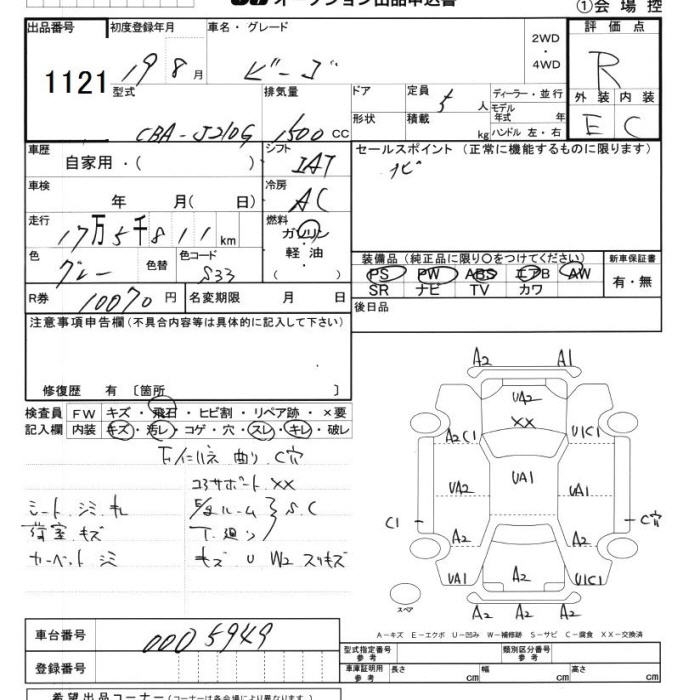 オークション出品申込書
①会場控
出品番号 初度登録年月 車名・グレード 評価点
1121 19 8月 ビーゴ 2WD・4WD R
型式 排気量 ドア 定員 5人 ディーラー・並行 外装 内装
CBA-J210G 1500 CC 形状 積載 kg モデル年式 年 ハンドル 左・右 E C
車歴 自家用・( ) シフト IAT セールスポイント (正常に機能するものに限ります)
ナビ
車検 年 月( 日) 冷房 AC
走行 17万5千811km 燃料 ガソリン・軽油 ( )
色 グレー 色替 色コード S33
装備品 (純正品に限り〇をつけてください) 新車保証書
PS PW ABS エアB AW 有・無
SR ナビ TV カワ
R券 10070円 名変期限 月 日 後日品
注意事項申告欄 (不具合内容等は具体的に記入して下さい)
修復歴 有 〔箇所 〕
検査員 FW キズ・飛石・ヒビ割・リペア跡・×要
記入欄 内装 キズ・汚レ・コゲ・穴・スレ・キレ・破レ
曲り C穴
コアサポート XX
シート シミ キレ
ルーム S.C
荷室 キズ
下廻り
カーペット シミ
キズ U W2 スリキズ
A2 A1
UA2
XX
A2C1 U1C1
UA2 UA1 UA1
C1 C穴
A2 A2
UA1 A2 U1C1
スペア
A2 A2 A2
A-キズ E-エクボ U-凹み W-補修跡 S-サビ C-腐食 XX-交換済
車台番号 0005949
型式指定番号 参考 類別区分番号 参考
登録番号
車庫証明用 参考 長さ cm 幅 cm 高さ cm
希望出品コーナー (コーナーは各会場により異なります。)